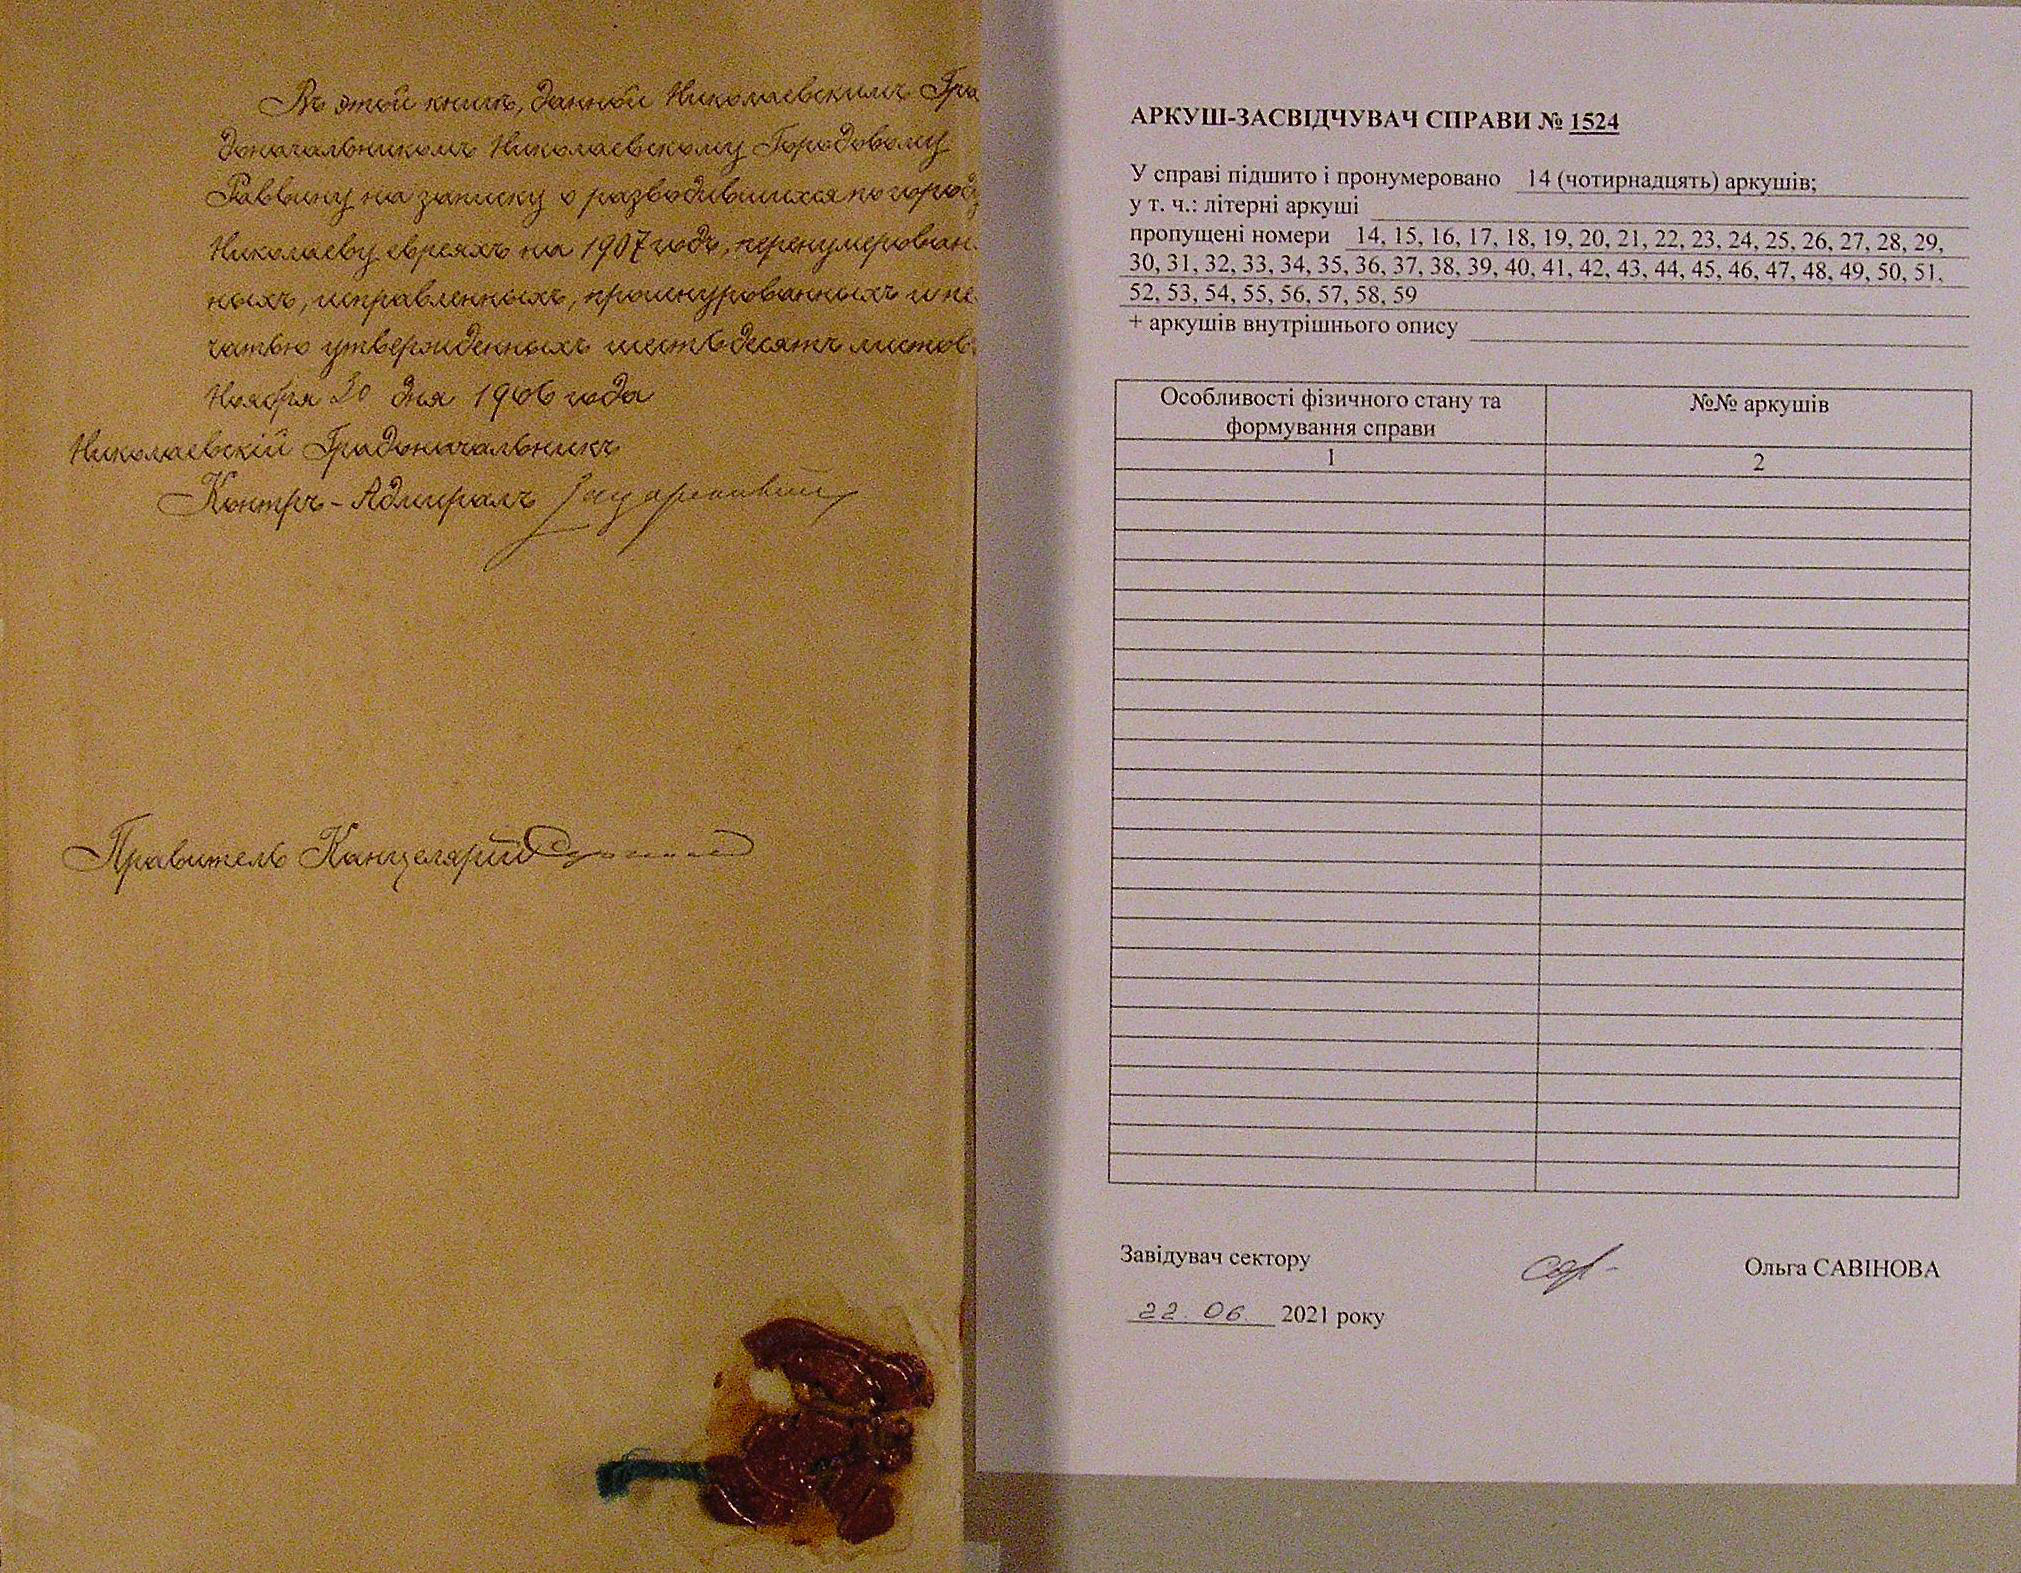 Въ этой книгѣ, данной Николаевскимъ Гра
доначальникомъ Николаевскому Городовому
Раввину на записку о разводившихся по городу
Николаеву евреяхъ на 1907 годъ, перенумерован
ныхъ, исправленныхъ, прошнурованныхъ и пе
чатью утвержденныхъ шестьдесятъ листов
Ноября 30 дня 1906 года
Николаевскій Градоначальникъ
Контръ-Адмиралъ
Правитель Канцеляріи
АРКУШ-ЗАСВІДЧУВАЧ СПРАВИ № 1524
У справі підшито і пронумеровано 14 (чотирнадцять) аркушів;
у т. ч.: літерні аркуші
пропущені номери 14, 15, 16, 17, 18, 19, 20, 21, 22, 23, 24, 25, 26, 27, 28, 29,
30, 31, 32, 33, 34, 35, 36, 37, 38, 39, 40, 41, 42, 43, 44, 45, 46, 47, 48, 49, 50, 51,
52, 53, 54, 55, 56, 57, 58, 59
+ аркушів внутрішнього опису
Особливості фізичного стану та
формування справи
№№ аркушів
1
2
Завідувач сектору
Ольга САВІНОВА
22. 06. 2021 року